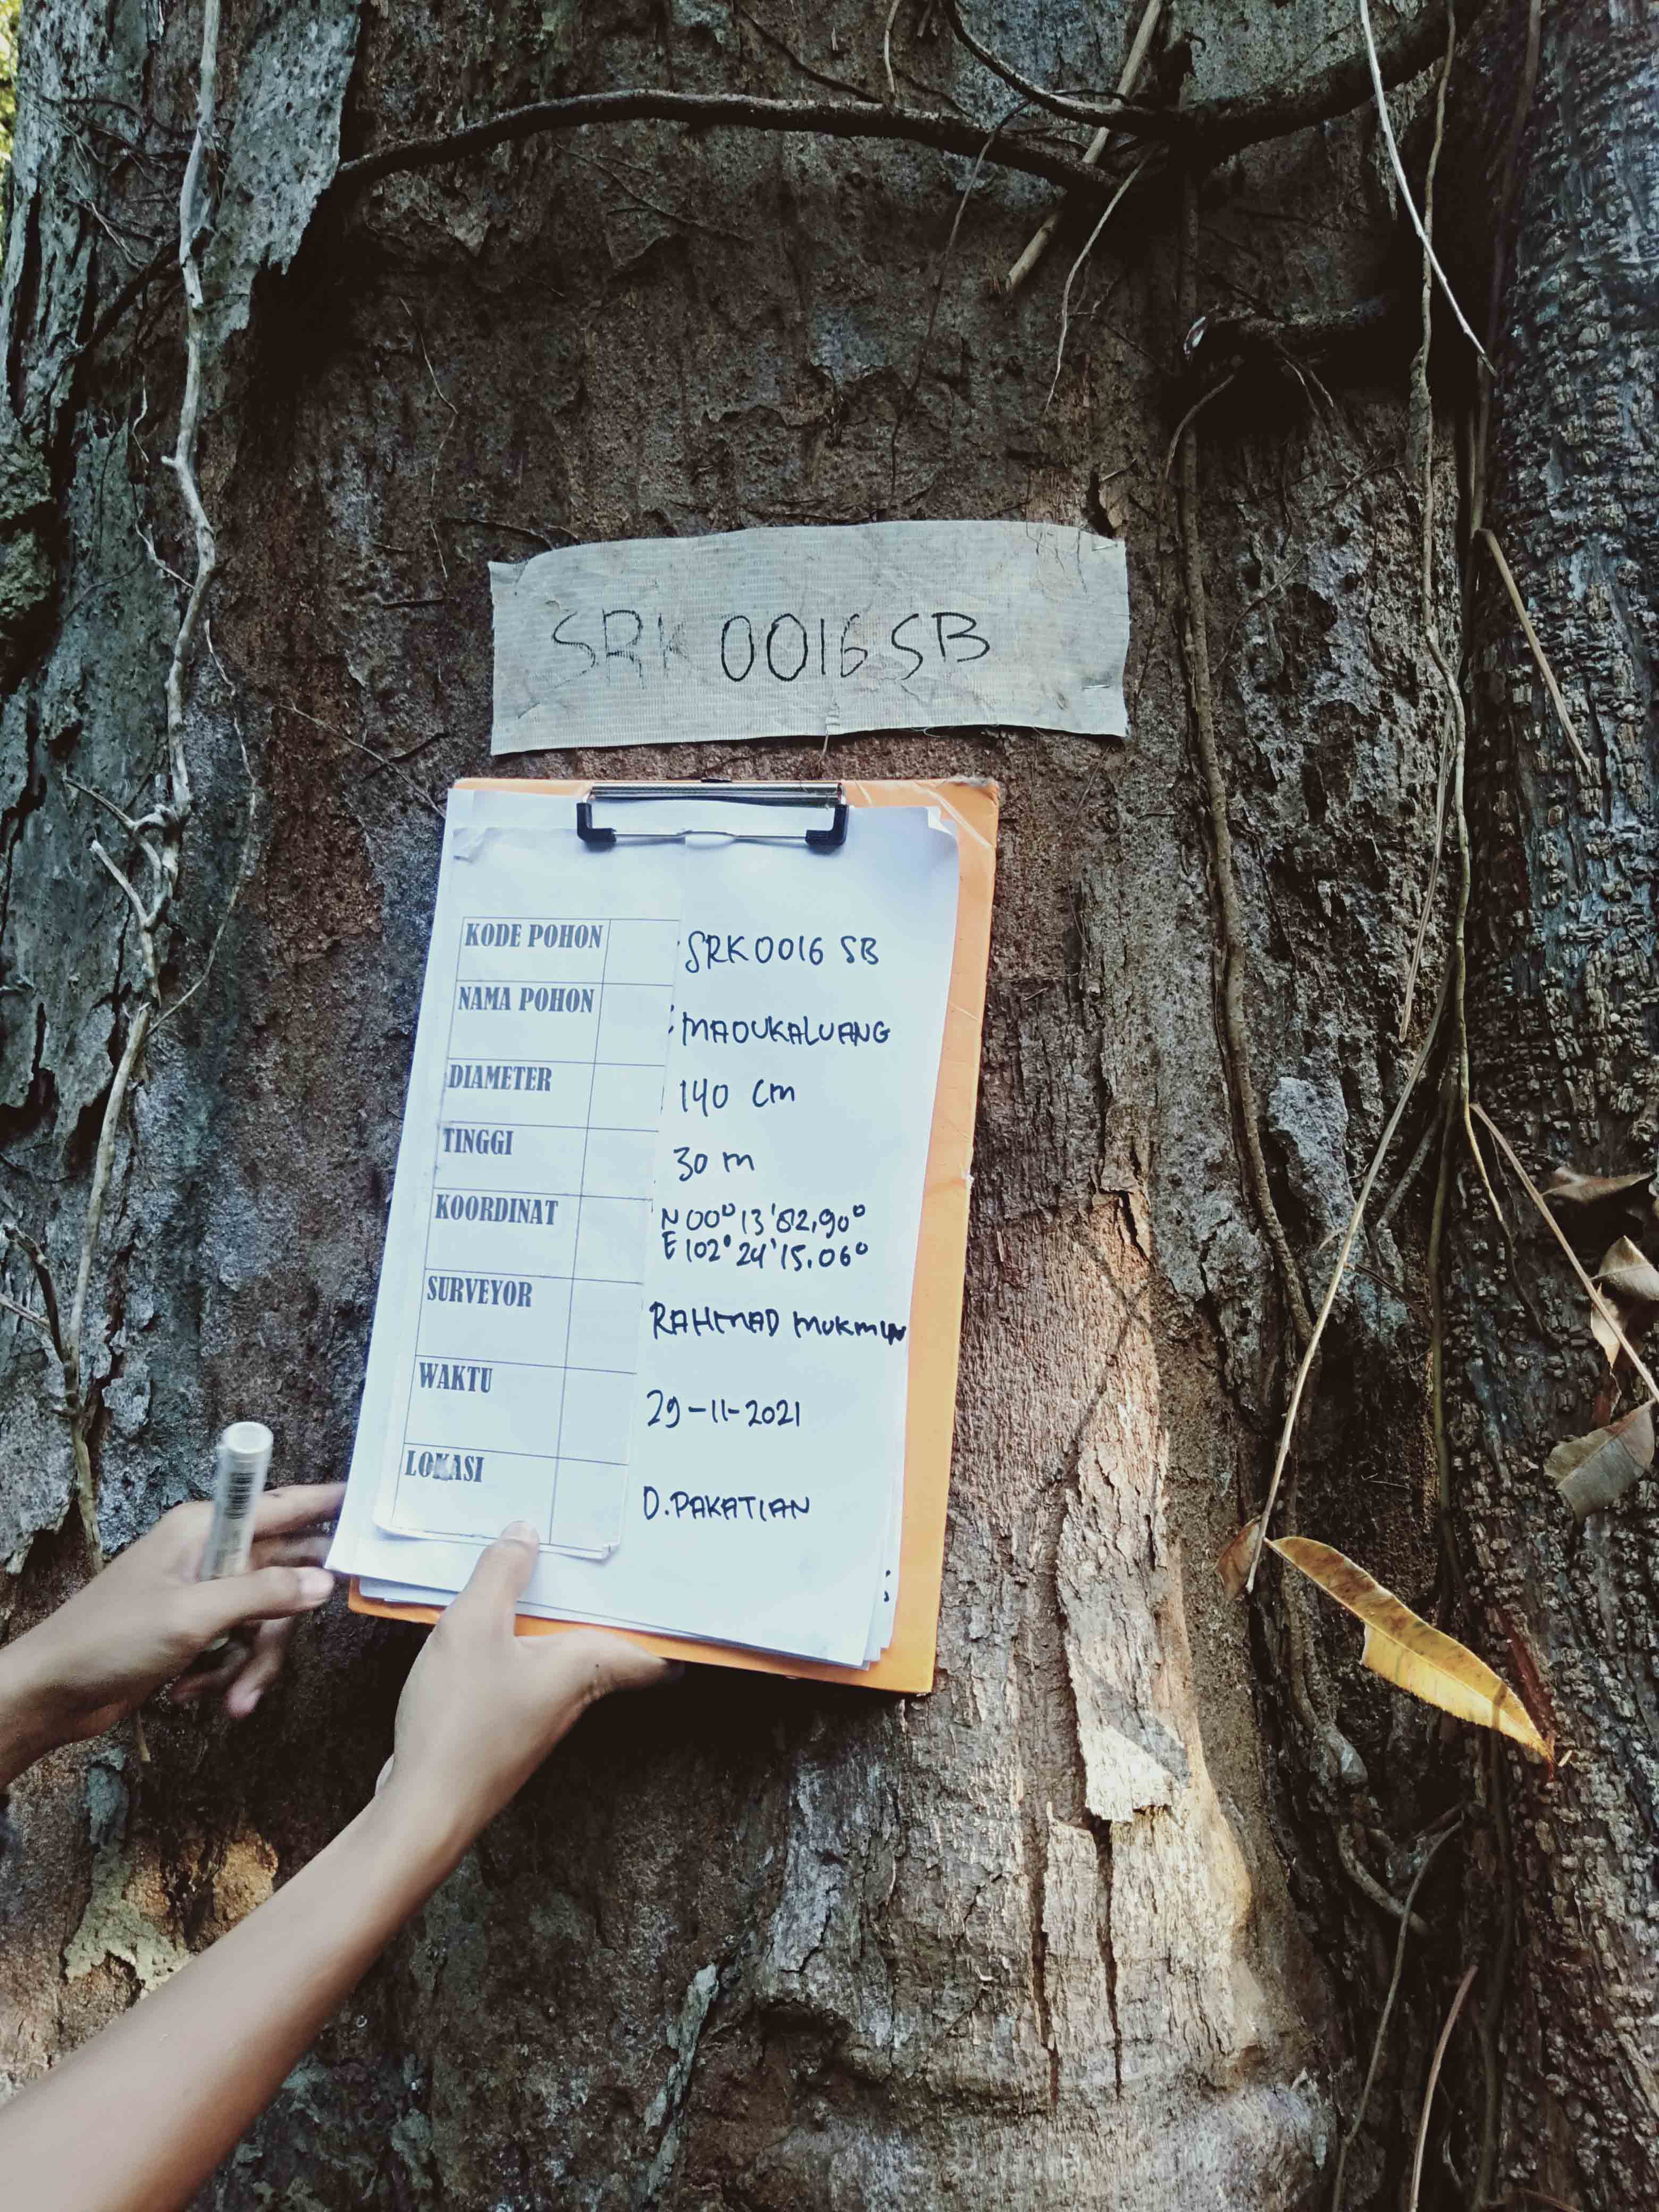 SRK 0016 SB
KODE POHON : SRK 0016 SB
NAMA POHON : MADUKALUANG
DIAMETER 140 cm
TINGGI 30 m
KOORDINAT N 00° 13' 52,90°
E 102° 24' 15.06°
SURVEYOR RAHMAD MUKMIN
WAKTU 29-11-2021
LOKASI D.PAKATIAN